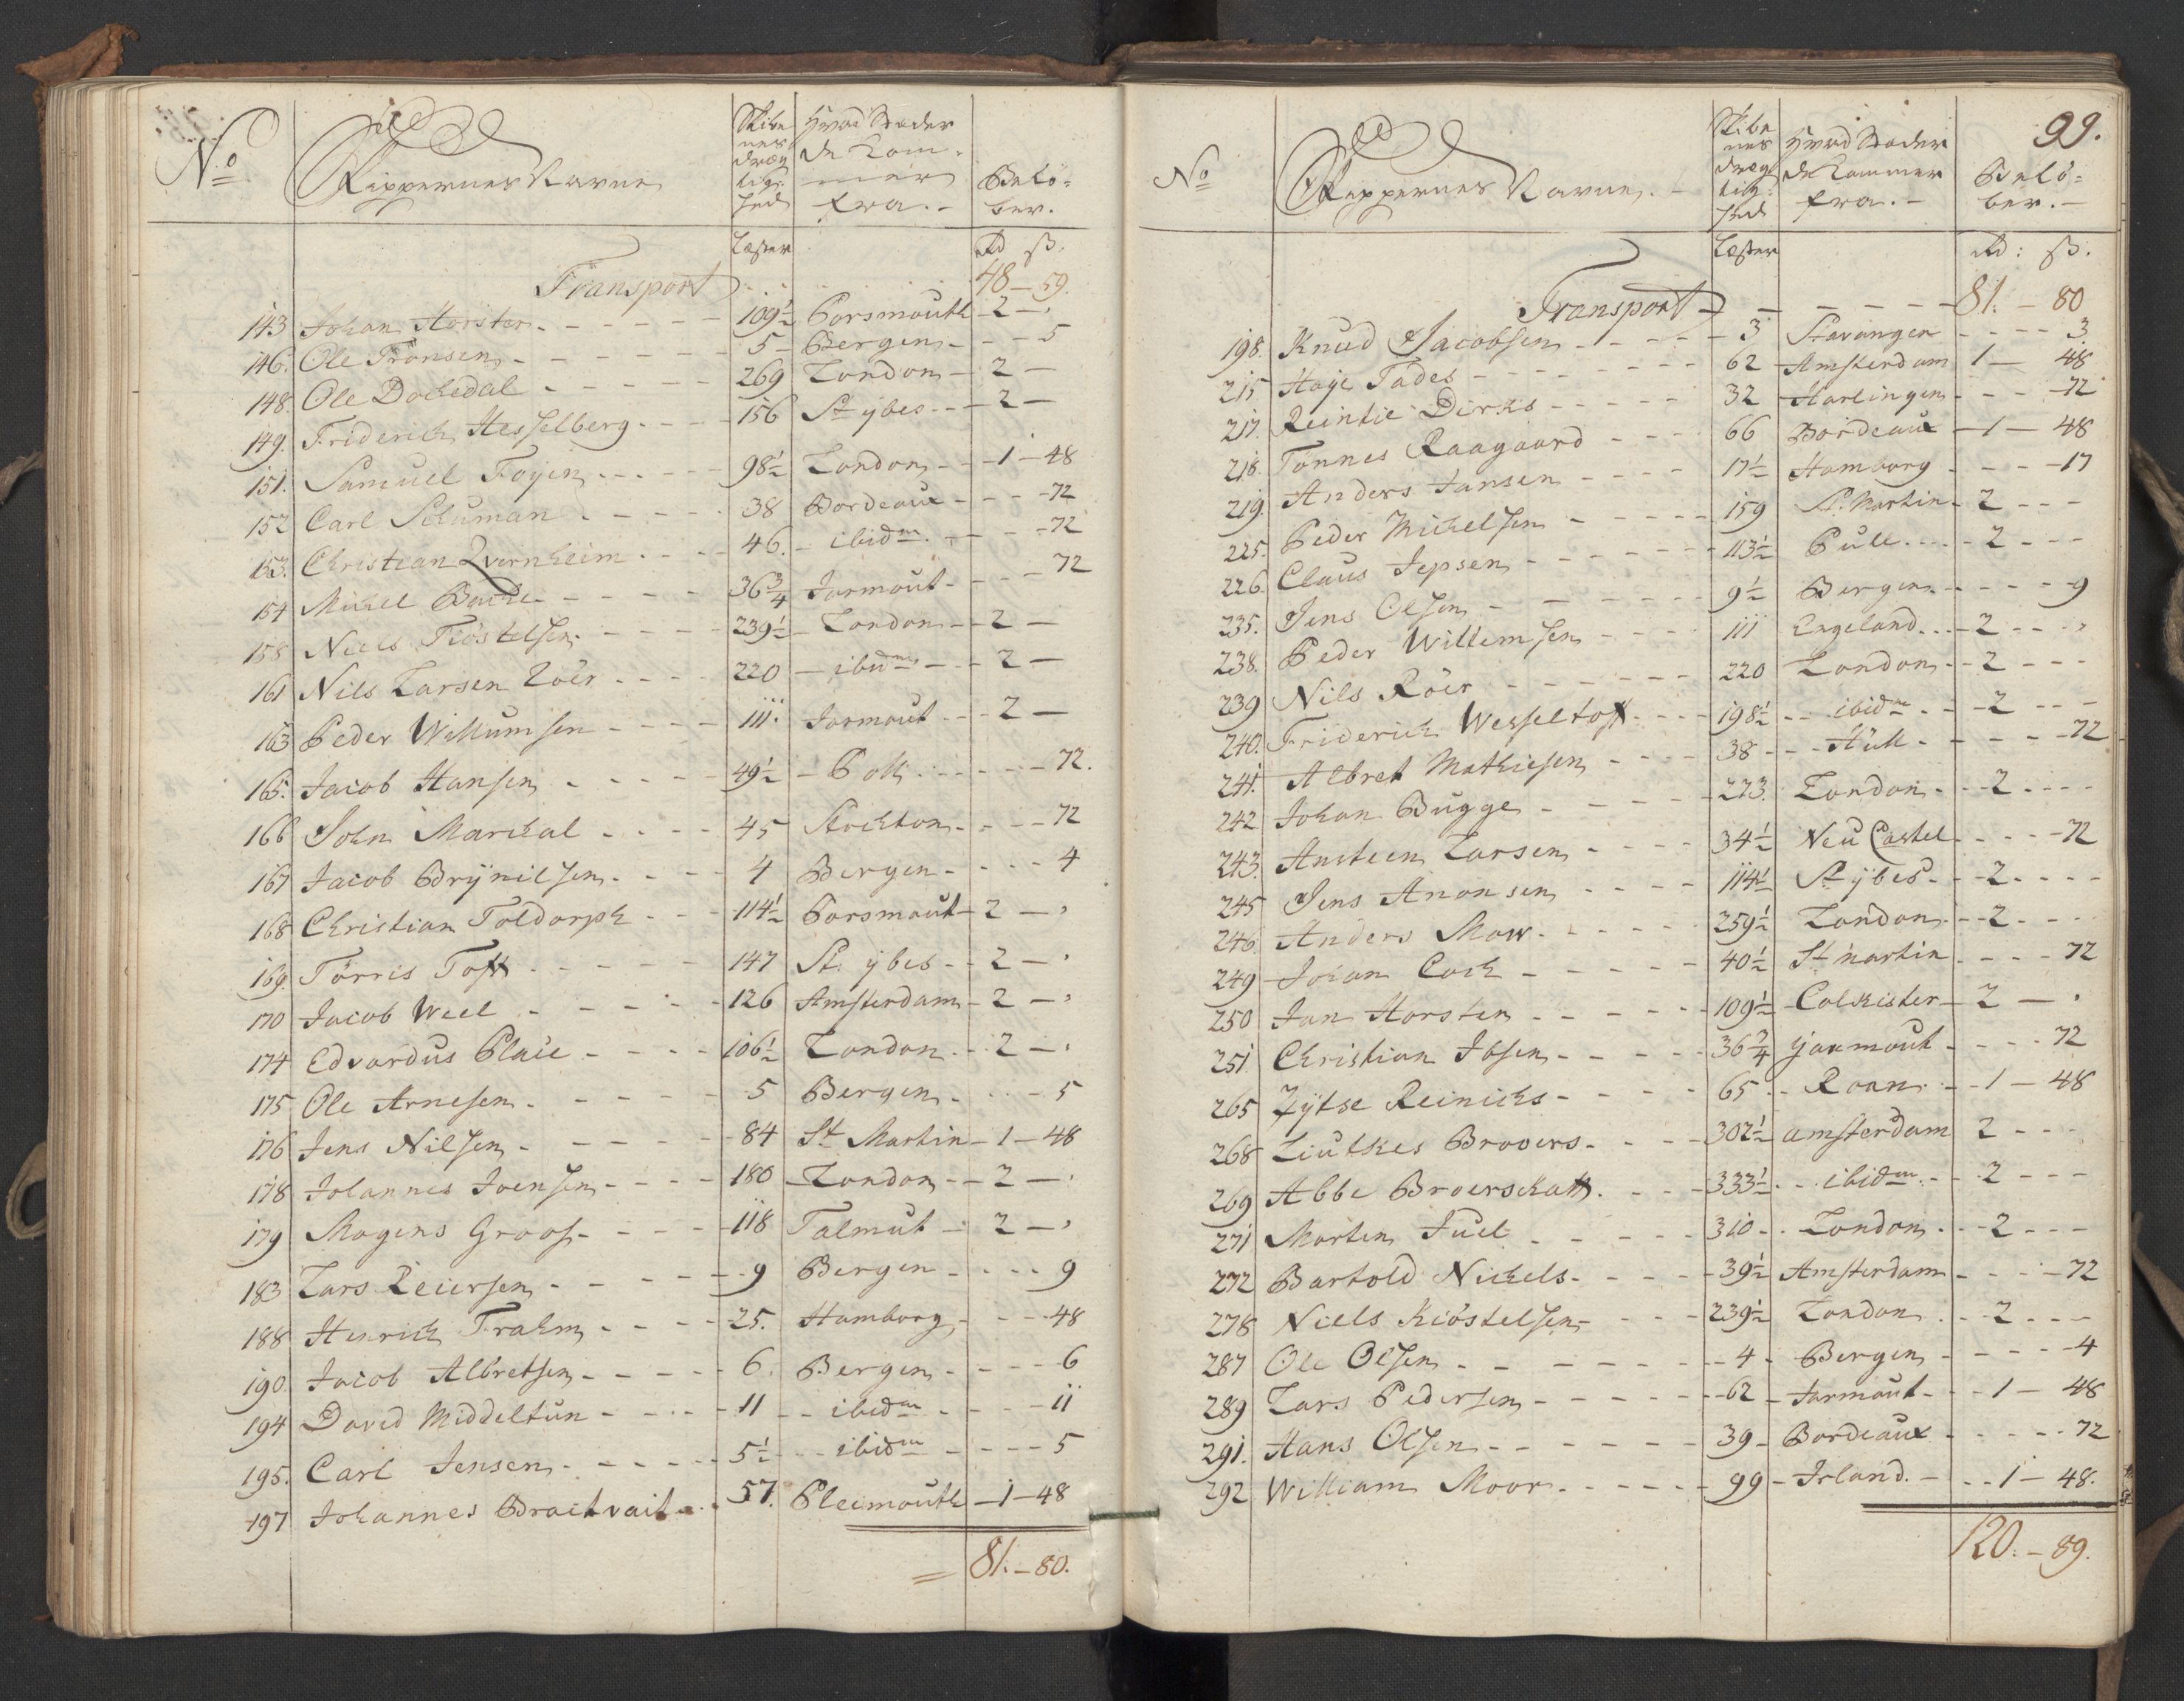 No Skippernes Navne Skibenes Drægtighed Hvad Stæder de kommer fra. Beløber.
Læster Rd ß.
Transport 48 - 59.
143 Johan Horster 109½ Porsmouth 2 -
146. Ole Tronsen 5 Bergen 5
148. Ole Dockedal 269 London 2 -
149. Friderich Hesselberg 156 St ybes 2 -
151. Samuel Foyen 98½ London 1 - 48
152 Carl Schuman 38 Bordeaux 72
153. Christian Qvernheim 46. ibidm 72
154 Mickel Backe 36¾ Jarmout 72
158 Niels Tiøstelsen 239½ London 2 -
161 Nils Larsen Röer 220 ibidm 2 -
163 Peder Willumsen 111. Jarmout 2 -
165. Jacob Hansen 49½ Poll 72.
166 John Marchal 45 Stockton 72
167 Jacob Brynilsen 4 Bergen 4
168 Christian Toldorph 114½ Porsmout 2 -
169. Törris Toft 147 St. ybes 2 -
170 Jacob Weel 126 Amsterdam 2 -
174 Edvardus Plaie 106½ London 2 -
175 Ole Arnesen 5 Bergen 5
176 Jens Nilsen 84 St Martin 1 - 48
178 Johannes Joensen 180 London 2 -
179 Mogens Groos 118 Falmut 2 -
183 Lars Reiersen 9 Bergen 9
188 Henrich Frahm 25. Hamborg 48
190. Jacob Albretsen 6. Bergen 6
194 David Middeltun 11 ibidm 11
195. Carl Jensen 5½ ibidm 5
197 Johannes Braitvait 57. Pleimouth 1 - 48
81. - 80.
99.
No Skippernes Navne. Skibenes Drægtighed Hvad Stæder de kommer fra. Beløber.
Læster Rd: ß.
Transport 81. - 80
198. Knud Jacobsen 3 Stavanger 3.
215 Haye Tades 62 Amsterdam 1 - 48
217. Reintie Dirks 32 Harlingen 72
218. Tönnes Raagaard 66 Bordeaux 1 - 48
219. Anders Jansen 17½ Hamborg 17
225. Peder Mickelsen 159 St. Martin 2
226. Claus Jepsen 113½ Pull 2
235. Jens Olsen 9½ Bergen 9
238. Peder Willemsen 111 Engeland 2
239 Nils Röer 220 London 2
240. Friderich Wesseltoft 198½ ibidm 2
241. Albret Mathiesen 38 Hull 72
242 Johan Bugge 273. London 2
243. Ansteen Larsen 34½ Neu Castel 72
245 Jens Anonsen 114½ St ybes 2
246. Anders Maw 259½ London 2
249 Johan Cock 40½ St martin 72
250 Jan Horsten 109½ Colkister 2 -
251. Christian Ibsen 36¾ yarmout 72
265 Zytse Reinicks 65 Roan 1 - 48
268 Liutkes Brovers 302½ amsterdam 2
269 Abbe Broerskatt 333½ ibidm 2
271 Morten Juel 310 London 2
272 Bartold Nickels 39½ Amsterdam 72
278 Niels Kiöstelsen 239½ London 2
287 Ole Olsen 4 Bergen 4
289 Lars Pedersen 62 Jarmout 1 - 48
291. Hans Olsen 39 Bordeaux 72
292 William Moor 99 Irland. 1 - 48.
120. - 89.